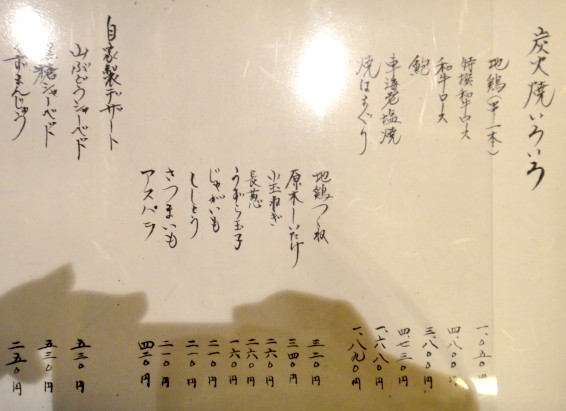 炭火焼いろいろ
地鶏(半一本) 一、〇五〇円
特撰和牛ロース 四、八〇〇円
和牛ロース 三、八〇〇円
鮑 四、七三〇円
車海老塩焼 一、六八〇円
焼はまぐり 一、八九〇円
地鶏つくね 三二〇円
原木しいたけ 三四〇円
小玉ねぎ 二六〇円
長葱 二六〇円
うずら玉子 一六〇円
じゃがいも 二一〇円
ししとう 二一〇円
さつまいも 二一〇円
アスパラ 四二〇円
自家製デザート
山ぶどうシャーベット 五三〇円
黒糖シャーベット 五三〇円
まんじゅう 二五〇円